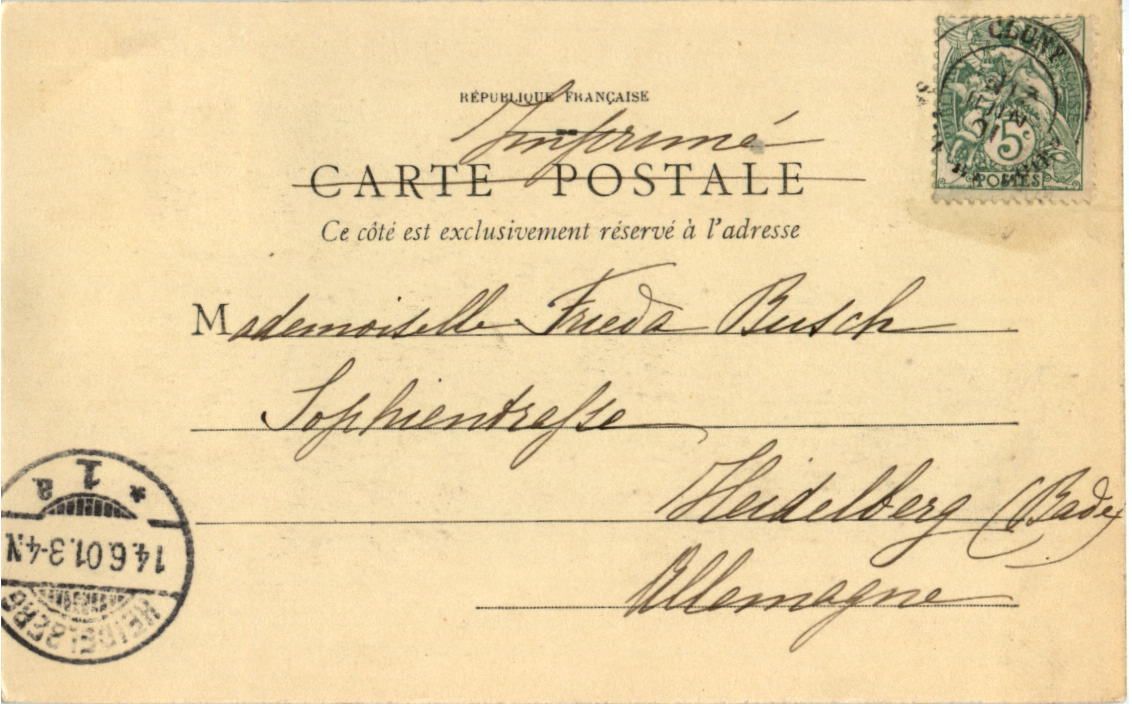 RÉPUBLIQUE FRANÇAISE
Imprimé
CARTE POSTALE
Ce côté est exclusivement réservé à l'adresse
CLUNY
JUIN
5c
POSTES
Mademoiselle Frieda Busch
Sophienstrasse
Heidelberg (Bade)
Allemagne
HEIDELBERG
14.6.01.3-4N
* 1 a